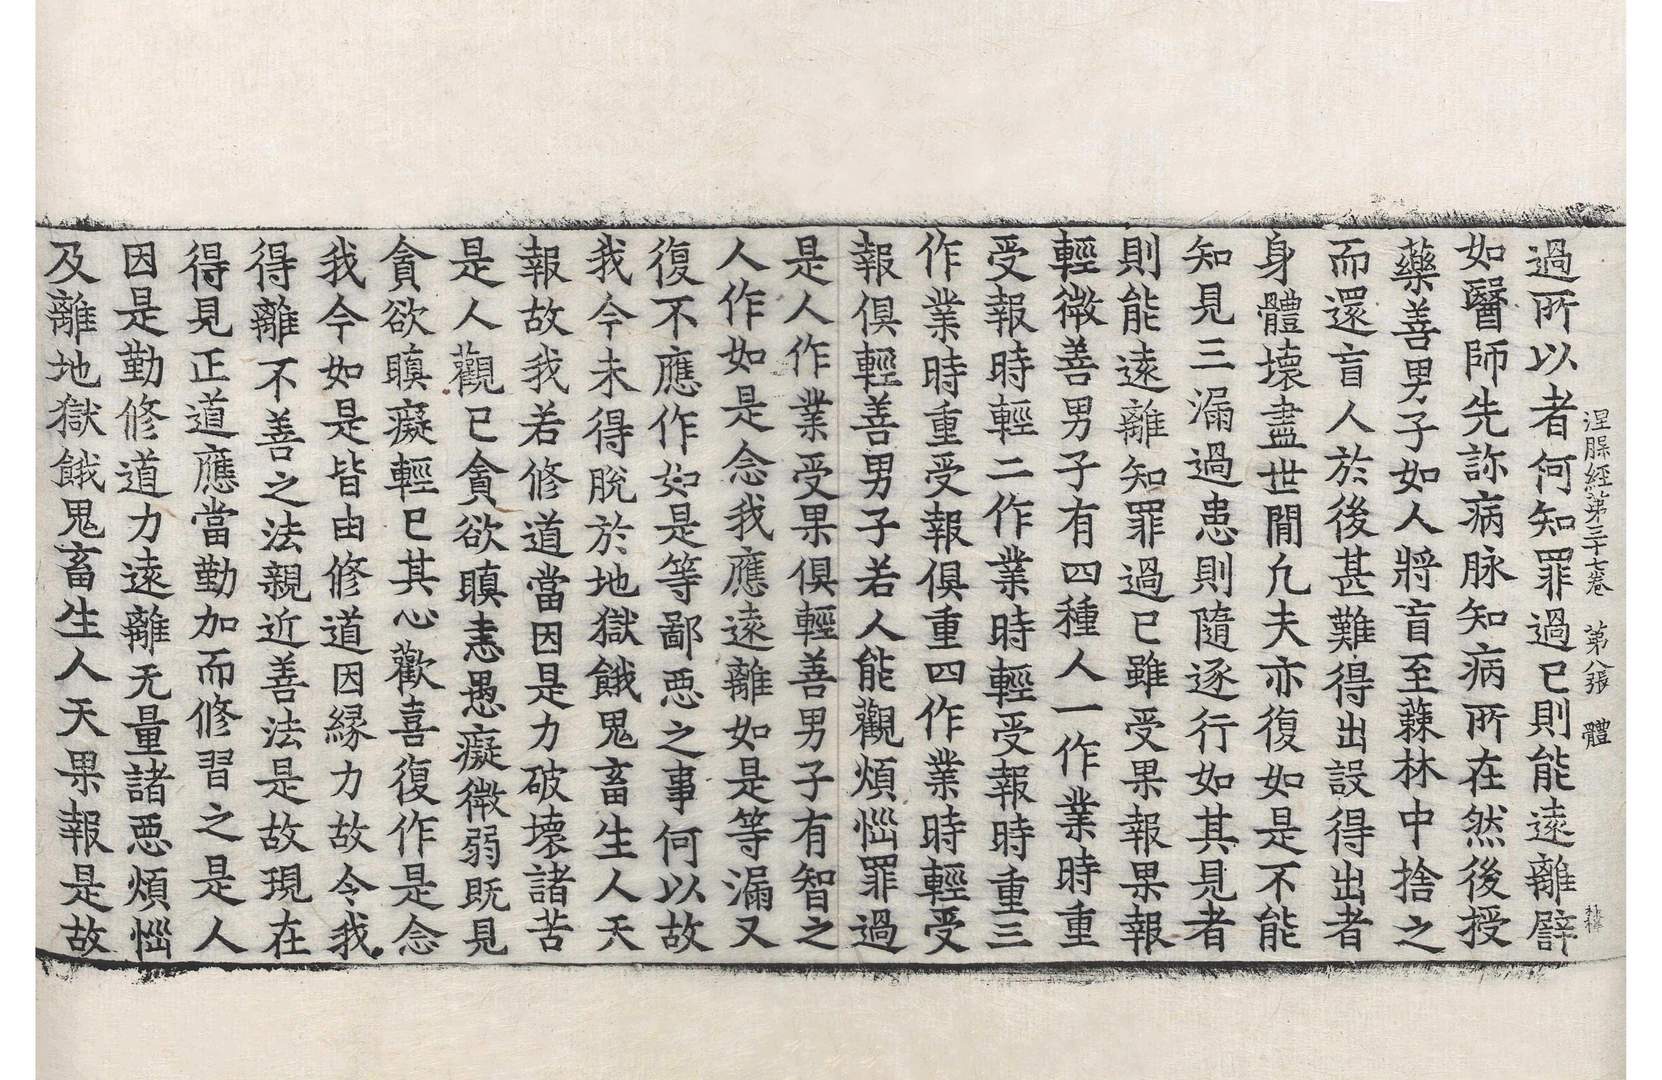 涅槃經第三十七卷　第八張　體
過所以者何知罪過已則能遠離譬
如醫師先診病脉知病所在然後授
藥善男子如人將盲至蕀林中捨之
而還盲人於後甚難得出設得出者
身體壞盡世間凡夫亦復如是不能
知見三漏過患則隨逐行如其見者
則能遠離知罪過已雖受果報果報
輕微善男子有四種人一作業時重
受報時輕二作業時輕受報時重三
作業時重受報俱重四作業時輕受
報俱輕善男子若人能觀煩惱罪過
是人作業受果俱輕善男子有智之
人作如是念我應遠離如是等漏又
復不應作如是等鄙惡之事何以故
我今未得脫於地獄餓鬼畜生人天
報故我若修道當因是力破壞諸苦
是人觀已貪欲瞋恚愚癡微弱既見
貪欲瞋癡輕已其心歡喜復作是念
我今如是皆由修道因緣力故令我
得離不善之法親近善法是故現在
得見正道應當勤加而修習之是人
因是勤修道力遠離无量諸惡煩惱
及離地獄餓鬼畜生人天果報是故